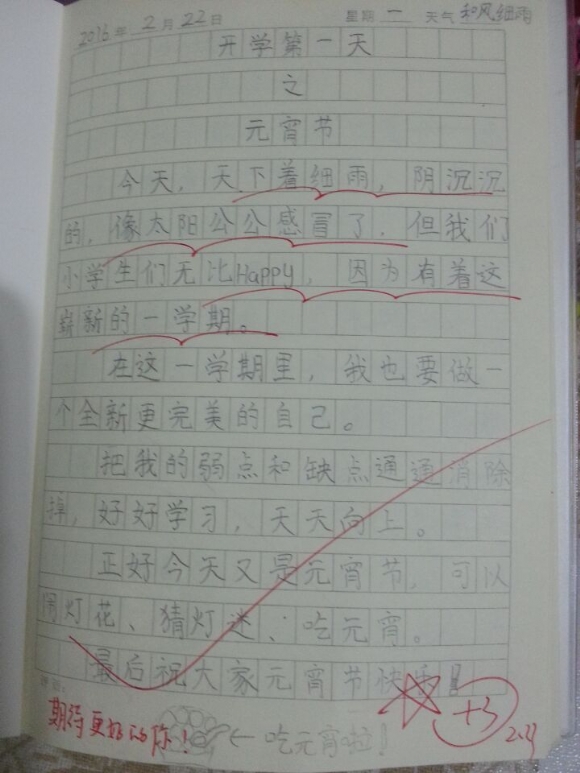 2016年 2月 22日 星期 一 天气 和风细雨
开学第一天
之
元宵节
今天，天下着细雨，阴沉沉
的，像太阳公公感冒了．但我们
小学生们无比Happy，因为有着这
崭新的一学期。
在这一学期里，我也要做一
个全新更完美的自己。
把我的弱点和缺点通通消除
掉，好好学习，天天向上。
正好今天又是元宵节，可以
闹灯花、猜灯迷、吃元宵。
最后祝大家元宵节快乐！
期待更好的你！ ←吃元宵啦！ +3 2.23